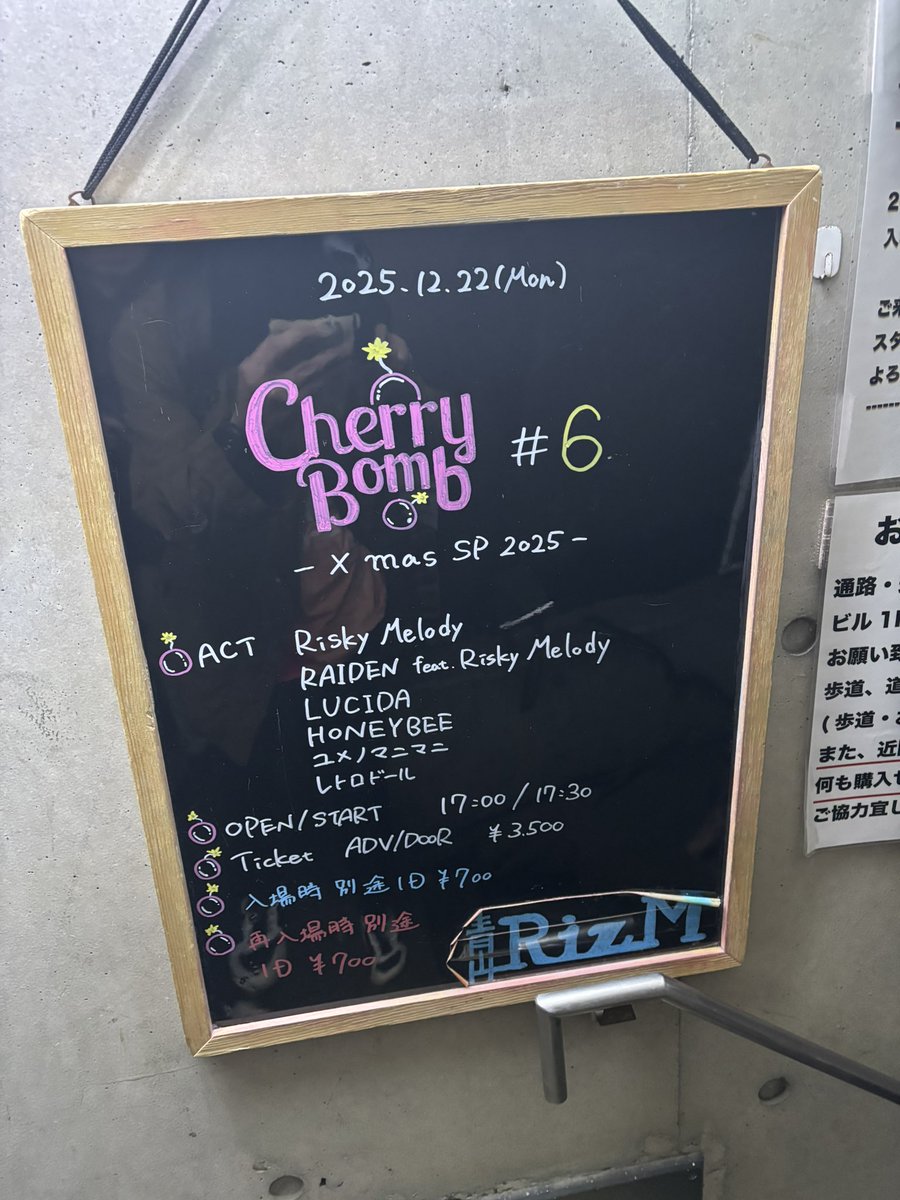 2025.12.22(Mon)
Cherry
Bomb
#6
- X mas SP 2025 -
ACT Risky Melody
RAIDEN feat. Risky Melody
LUCIDA
HONEYBEE
ユメノマニマニ
レトロドール
OPEN/START 17:00/17:30
Ticket ADV/DOOR ¥3.500
入場時 別途1D ¥700
再入場時 別途
1D ¥700
青山 RizM
2
入
ご来
スタ
よろ
お
通路・
ビル 1
お願い至
歩道、道
(歩道・
また、近
何も購入せ
ご協力宜し